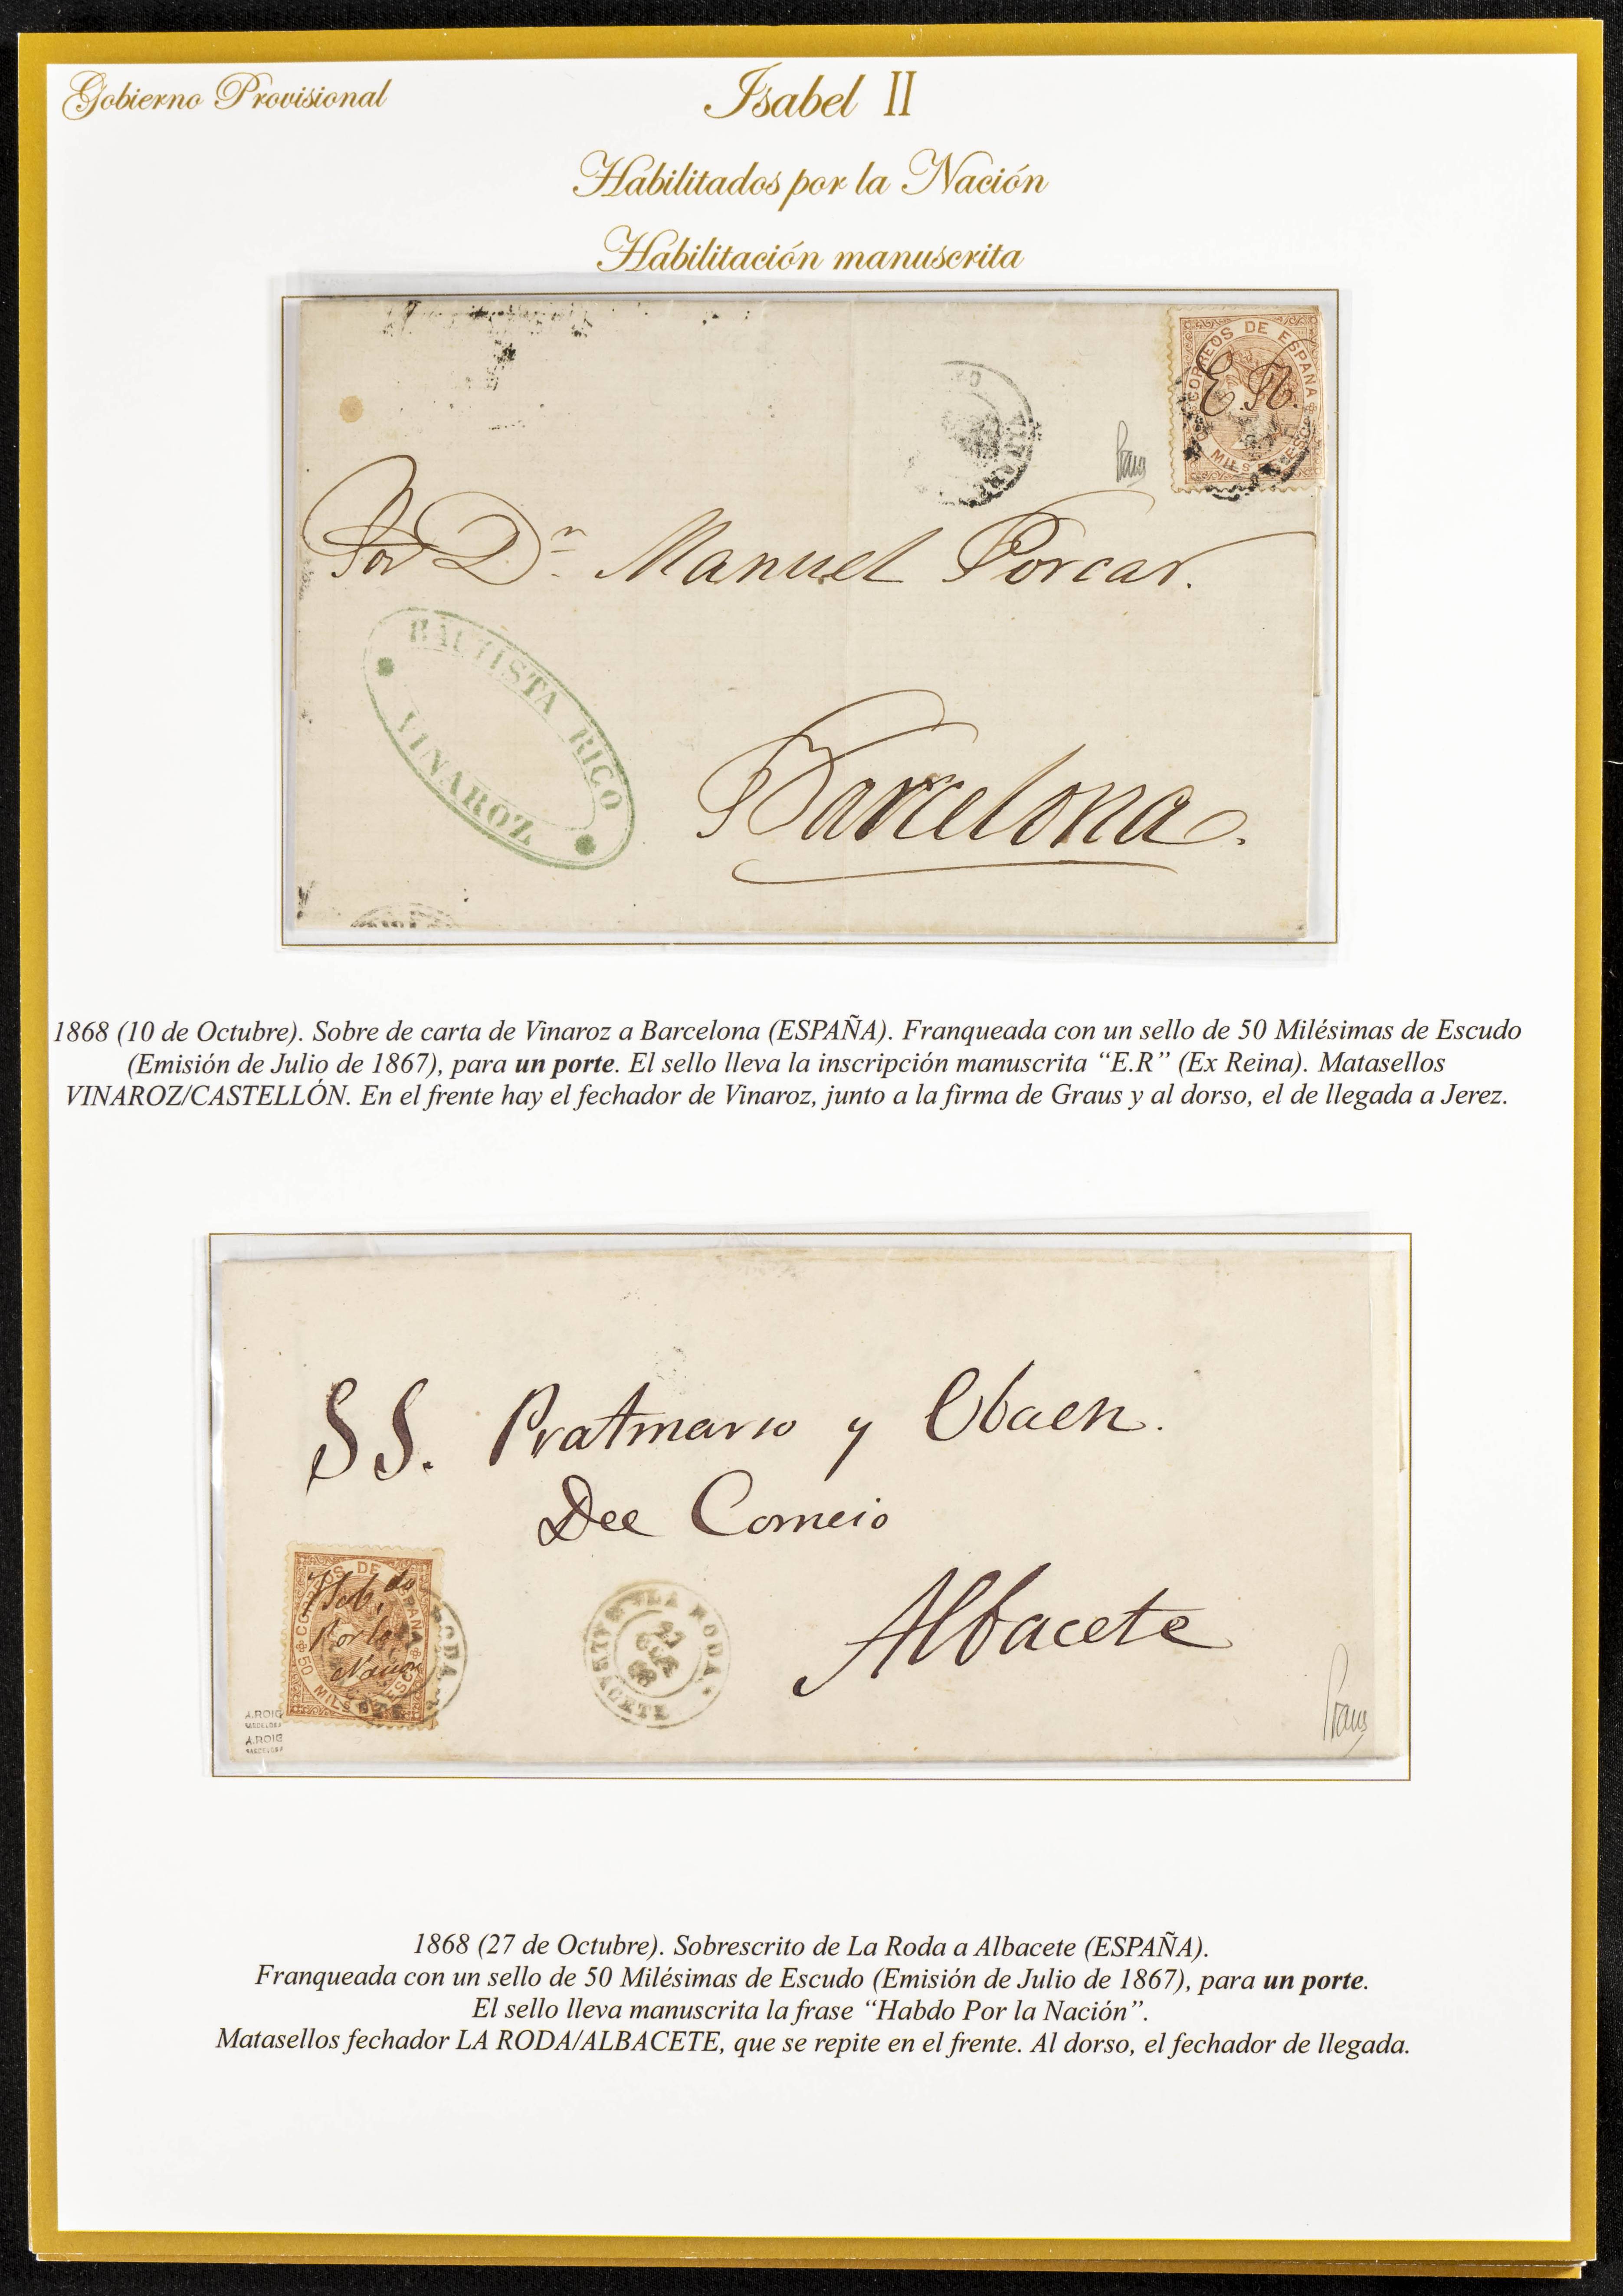 Gobierno Provisional
Isabel II
Habilitados por la Nación
Habilitación manuscrita
CORREOS DE ESPAÑA
E.R.
Por Dn. Manuel Porcar.
BAUTISTA RICO
VINAROZ
Barcelona.
1868 (10 de Octubre). Sobre de carta de Vinaroz a Barcelona (ESPAÑA). Franqueada con un sello de 50 Milésimas de Escudo
(Emisión de Julio de 1867), para un porte. El sello lleva la inscripción manuscrita “E.R” (Ex Reina). Matasellos
VINAROZ/CASTELLÓN. En el frente hay el fechador de Vinaroz, junto a la firma de Graus y al dorso, el de llegada a Jerez.
SS. Pratmarso y Obaen.
Del Comercio
Albacete
CORREOS DE ESPAÑA
50 MILS DE ESCO
Habdo
Por la
Nación
LA RODA
27 OCT 68
ALBACETE
A.ROIG
BARCELONA
A.ROIG
BARCELONA
Graus
1868 (27 de Octubre). Sobrescrito de La Roda a Albacete (ESPAÑA).
Franqueada con un sello de 50 Milésimas de Escudo (Emisión de Julio de 1867), para un porte.
El sello lleva manuscrita la frase “Habdo Por la Nación”.
Matasellos fechador LA RODA/ALBACETE, que se repite en el frente. Al dorso, el fechador de llegada.